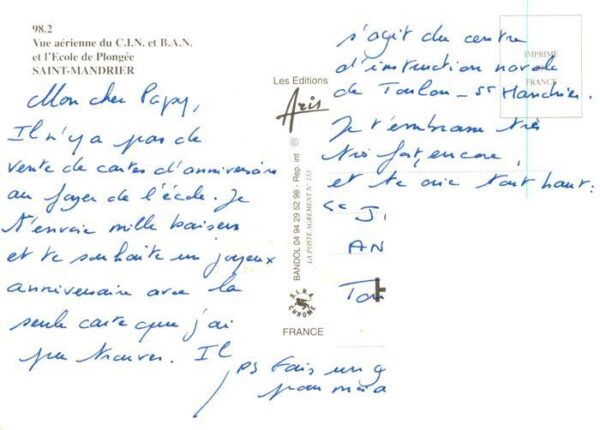 98.2
Vue aérienne du C.I.N. et B.A.N.
et l'Ecole de Plongée
SAINT-MANDRIER
Mon cher Papy,
Il n'y a pas de
vente de cartes d'anniversaire
au foyer de l'école. Je
t'envoie mille baisers
et te souhaite un joyeux
anniversaire avec la
seule carte que j'ai
pu trouver. Il
s'agit du centre
d'instruction navale
de Toulon - St Mandrier.
Je t'embrasse très
très fort, encore,
et te crie tout haut :
" J.
AN
Ton
PS Fais un g
pour ma
Les Editions
Aris
BANDOL 04 94 29 52 98 - Rep. int ©
LA POSTE AGREMENT N° 133
SIRA
CHROME
FRANCE
IMPRIMÉ
FRANCE